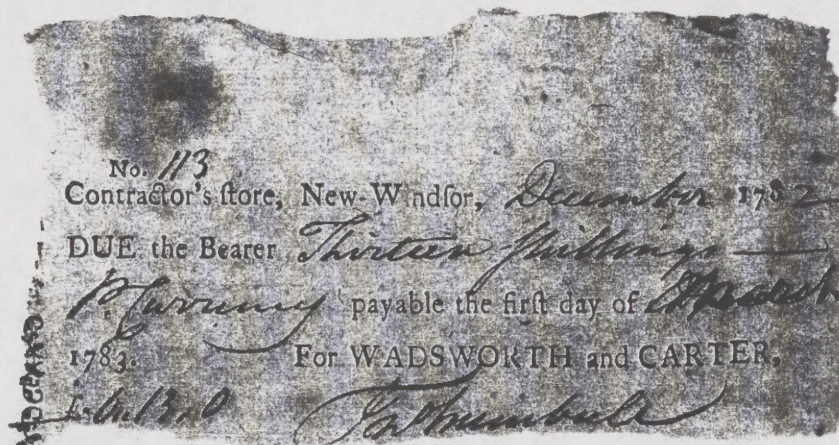 No. 113
Contractor's ſtore, New-Windſor, December 1782
DUE the Bearer Thirteen Shillings —
Currency payable the firſt day of March
1783. For WADSWORTH and CARTER.
£0.13.0 Trumbull